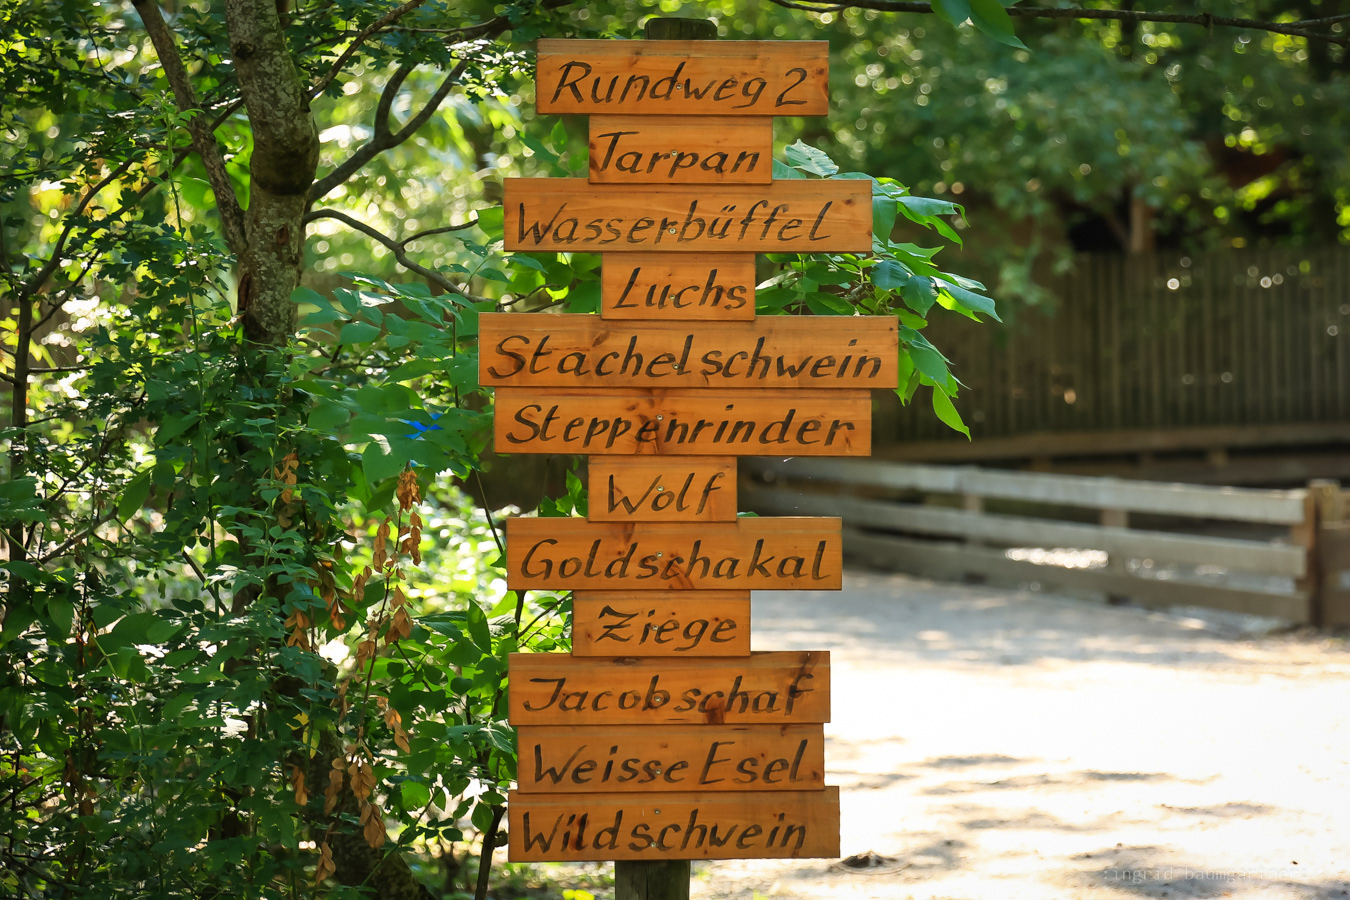 Rundweg 2
Tarpan
Wasserbüffel
Luchs
Stachelschwein
Steppenrinder
Wolf
Goldschakal
Ziege
Jacobschaf
Weisse Esel
Wildschwein
ingrid